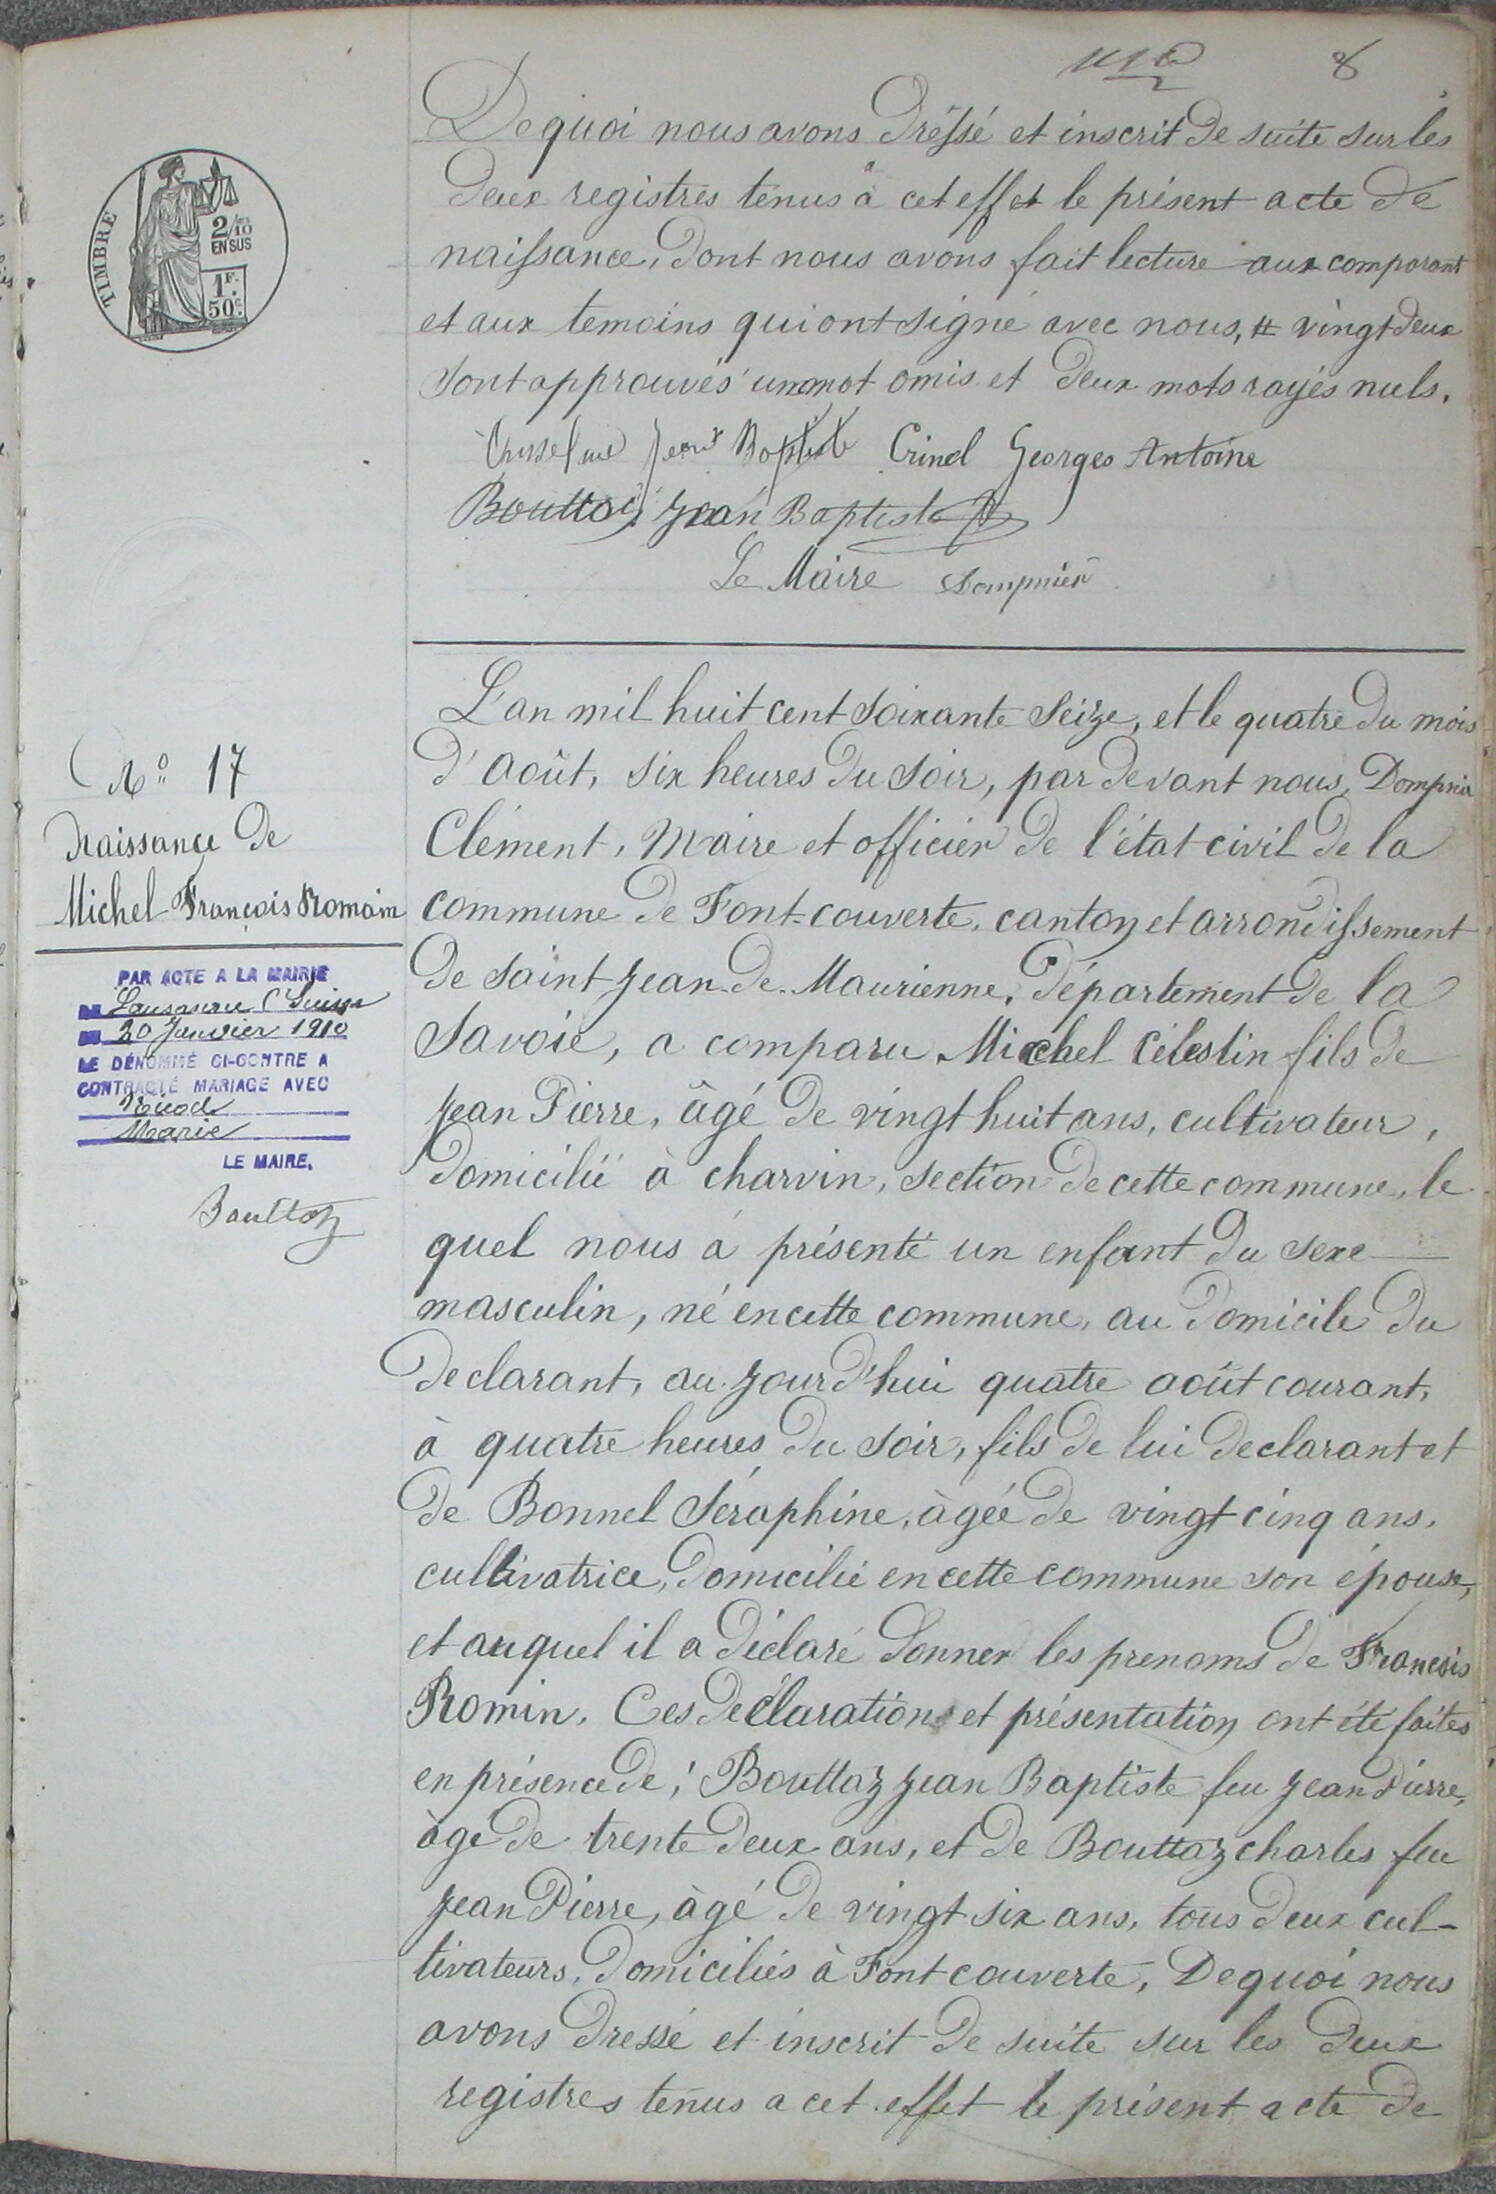 8
De quoi nous avons dressé et inscrit de suite sur les
deux registres tenus à cet effet le présent acte de
naissance, dont nous avons fait lecture aux comparant
et aux temoins qui ont signé avec nous, # vingt deux
sont approuvés un mot omis et deux mots rayés nuls.
Jean Baptiste Crinel Georges Antoine
Bouttaz Jean Baptiste
Le Maire Dompnier
TIMBRE
2/10
EN SUS
1F.
50c.
No 17
Naissance de
Michel François Romain
PAR ACTE A LA MAIRIE
DE Lausanne (Suisse
DU 20 Janvier 1910
LE DÉNOMMÉ CI-CONTRE A
CONTRACTÉ MARIAGE AVEC
Marie
LE MAIRE,
Bouttaz
L'an mil huit cent soixante seize, et le quatre du mois
d'août, six heures du soir, par devant nous, Dompnier
Clément, Maire et officier de l'état civil de la
commune de Font-couverte, canton et arrondissement
de Saint Jean de Maurienne, département de la
Savoie, a comparu Michel Célestin fils de
Jean Pierre, âgé de vingt huit ans, cultivateur,
domicilié à charvin, section de cette commune, le
quel nous a présenté un enfant du sexe
masculin, né en cette commune, au domicile du
declarant, au jourd'hui quatre août courant,
à quatre heures du soir, fils de lui declarant et
de Bonnel Séraphine, àgée de vingt cinq ans,
cultivatrice, domicilié en cette commune son épouse,
et auquel il a déclaré donner les prenoms de François
Romin. Ces déclaration et présentation ont été faites
en présence de; Bouttaz Jean Baptiste feu Jean Pierre,
àgé de trente deux ans, et de Bouttaz charles feu
Jean Pierre, àgé de vingt six ans, tous deux cul-
tivateurs, domiciliés à Font couverte, De quoi nous
avons dressé et inscrit de suite sur les deux
registres tenus a cet effet le présent acte de